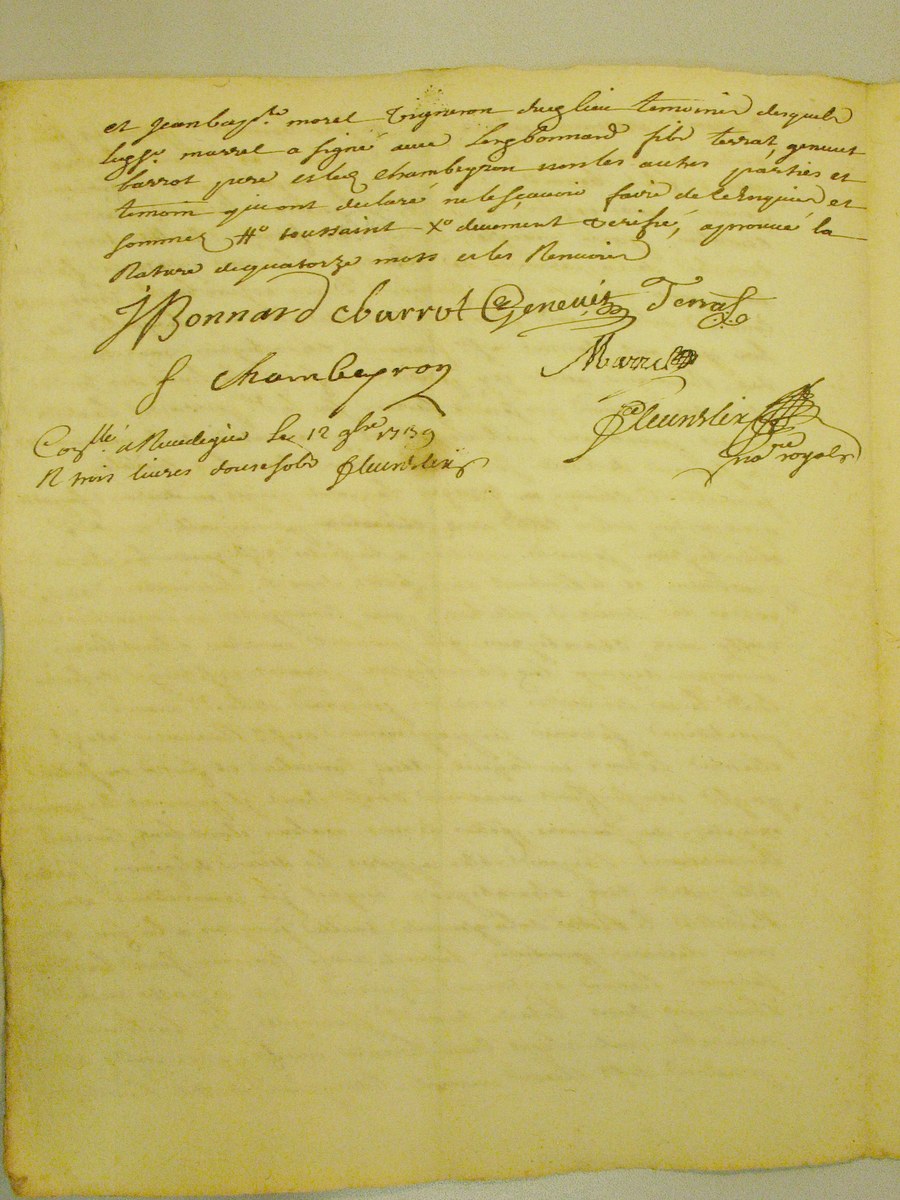 et Jean bap.te morel vigneron dud lieu temoins desquels
led sr marrel a signé avec led Bonnard fils terrat, genevet
barrot pere et led Chambeyron non les autres parties et
temoin qui ont declaré ne le scavoir faire de ce enquis et
sommes #º toussaint Xº deuement verifié, aprouvé la
Rature de quatorze mots et les Renvois
JBonnard cbarrot Genevet Terrat
f chambeyron Marrel
fleurdelix
nore royal
Conllé a Rivedegier Le 12 9bre 1739
R trois livres douse sols fleurdelix